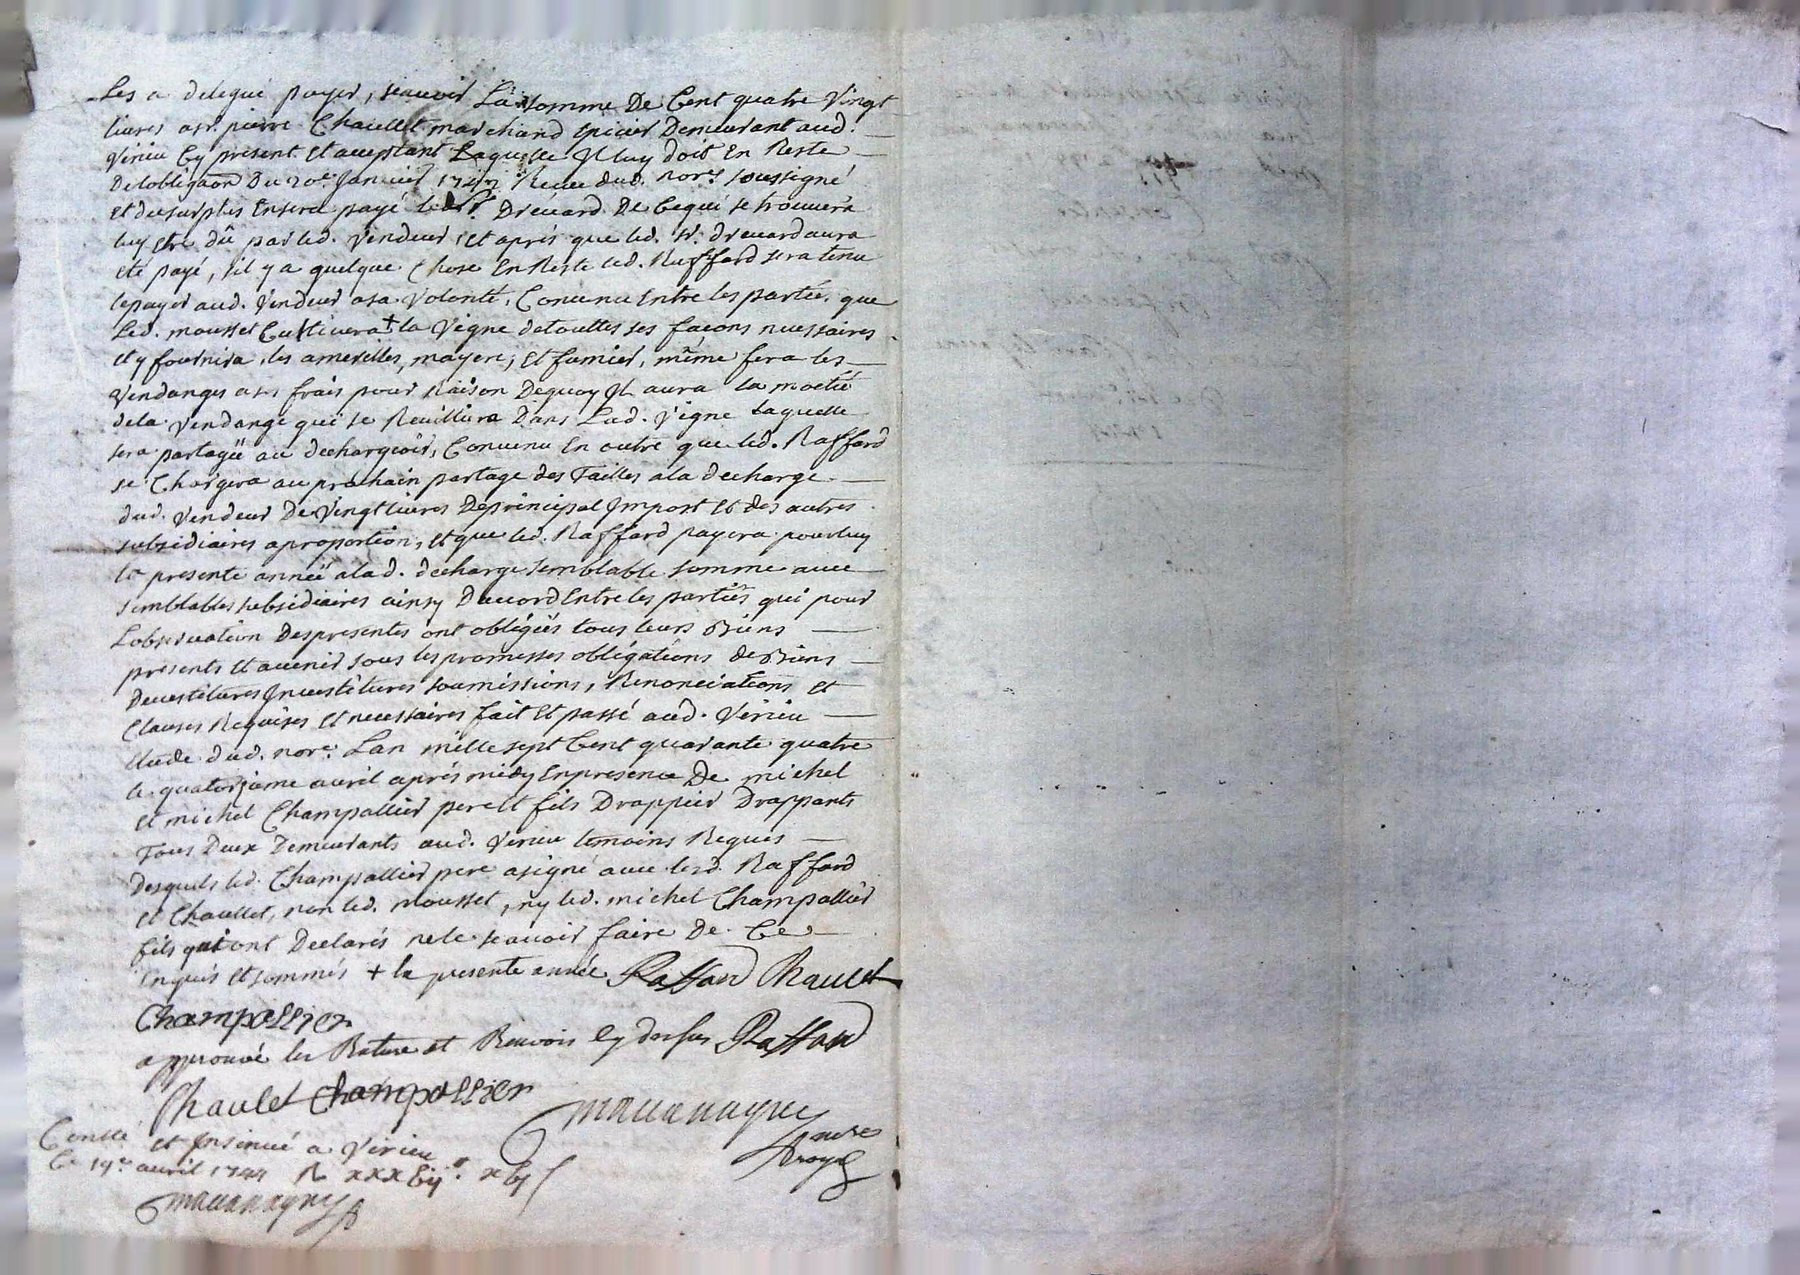 Les a delegué payer, scauoir La somme De Cent quatre Vingt
liures a sr. pierre Chaullet marchand Epicier Demeurant aud.
Virieu Cy present Et acceptant Laquelle Il luy doit En Reste
De lobliga͠on Du 20e. Janvier Receu dud. nore. soussigné
Et du surplus En sera payé led. sr. Dreuard De Cequi se trouuera
luy être dû par led. Vendeur, et aprés que led. sr. dreuard aura
été payé, s'il y a quelque Chose En Reste led. Raffard sera tenu
le payer aud. Vendeur a sa Volonté, Conuenu Entre les parties que
Led. mousset Cultiuera + la Vigne de touttes ses facons necessaires
et y fournira les mayere, Et fumier, même fera les
Vendanges a ses frais pour Raison Dequoy Il aura la moetié
dela Vendange qui se Reuillira Dans Lad. Vigne Laquelle
sera partagée au dechargeoir, Conuenu En outre que led. Raffard
se Chargera au prochain partage des Tailles a la decharge
dud. Vendeur De Vingt liures De principal Impost Et des autres
subsidiaires a proportion, et que led. Raffard payera pour luy
la presente année a lad. decharge semblable somme auec
semblables subsidiaires ainsy Daccord Entre les parties qui pour
Lobseruation Des presentes ont obligées tous leurs Biens
presents Et auenir sous les promesses obligations de Biens
Deuestitures Inuestitures soumissions, Renonciations Et
Clauses Requises Et necessaires fait Et passé aud. Virieu
Etude dud. nore. Lan mille sept Cent quarante quatre
le quatorzieme auril aprés midy En presence De michel
et michel Champallier pere Et fils Drappier Drappants
Tous Deux Demeurants aud. Virieu temoins Requis
Desquels led. Champallier pere a signé auec lesd. Raffard
et Chaullet, non led. Mousset, ny led. michel Champallier
fils qui ont Declarés ne le scauoir faire De Ce
Enquis Et sommés + la presente année Raffard Chaulet
Champollier
approuvé les Rature et Renvois Cy dessus Raffard
Chaulet Champollier
Conllé et Insinué a Virieu
le 14e. auril 1744